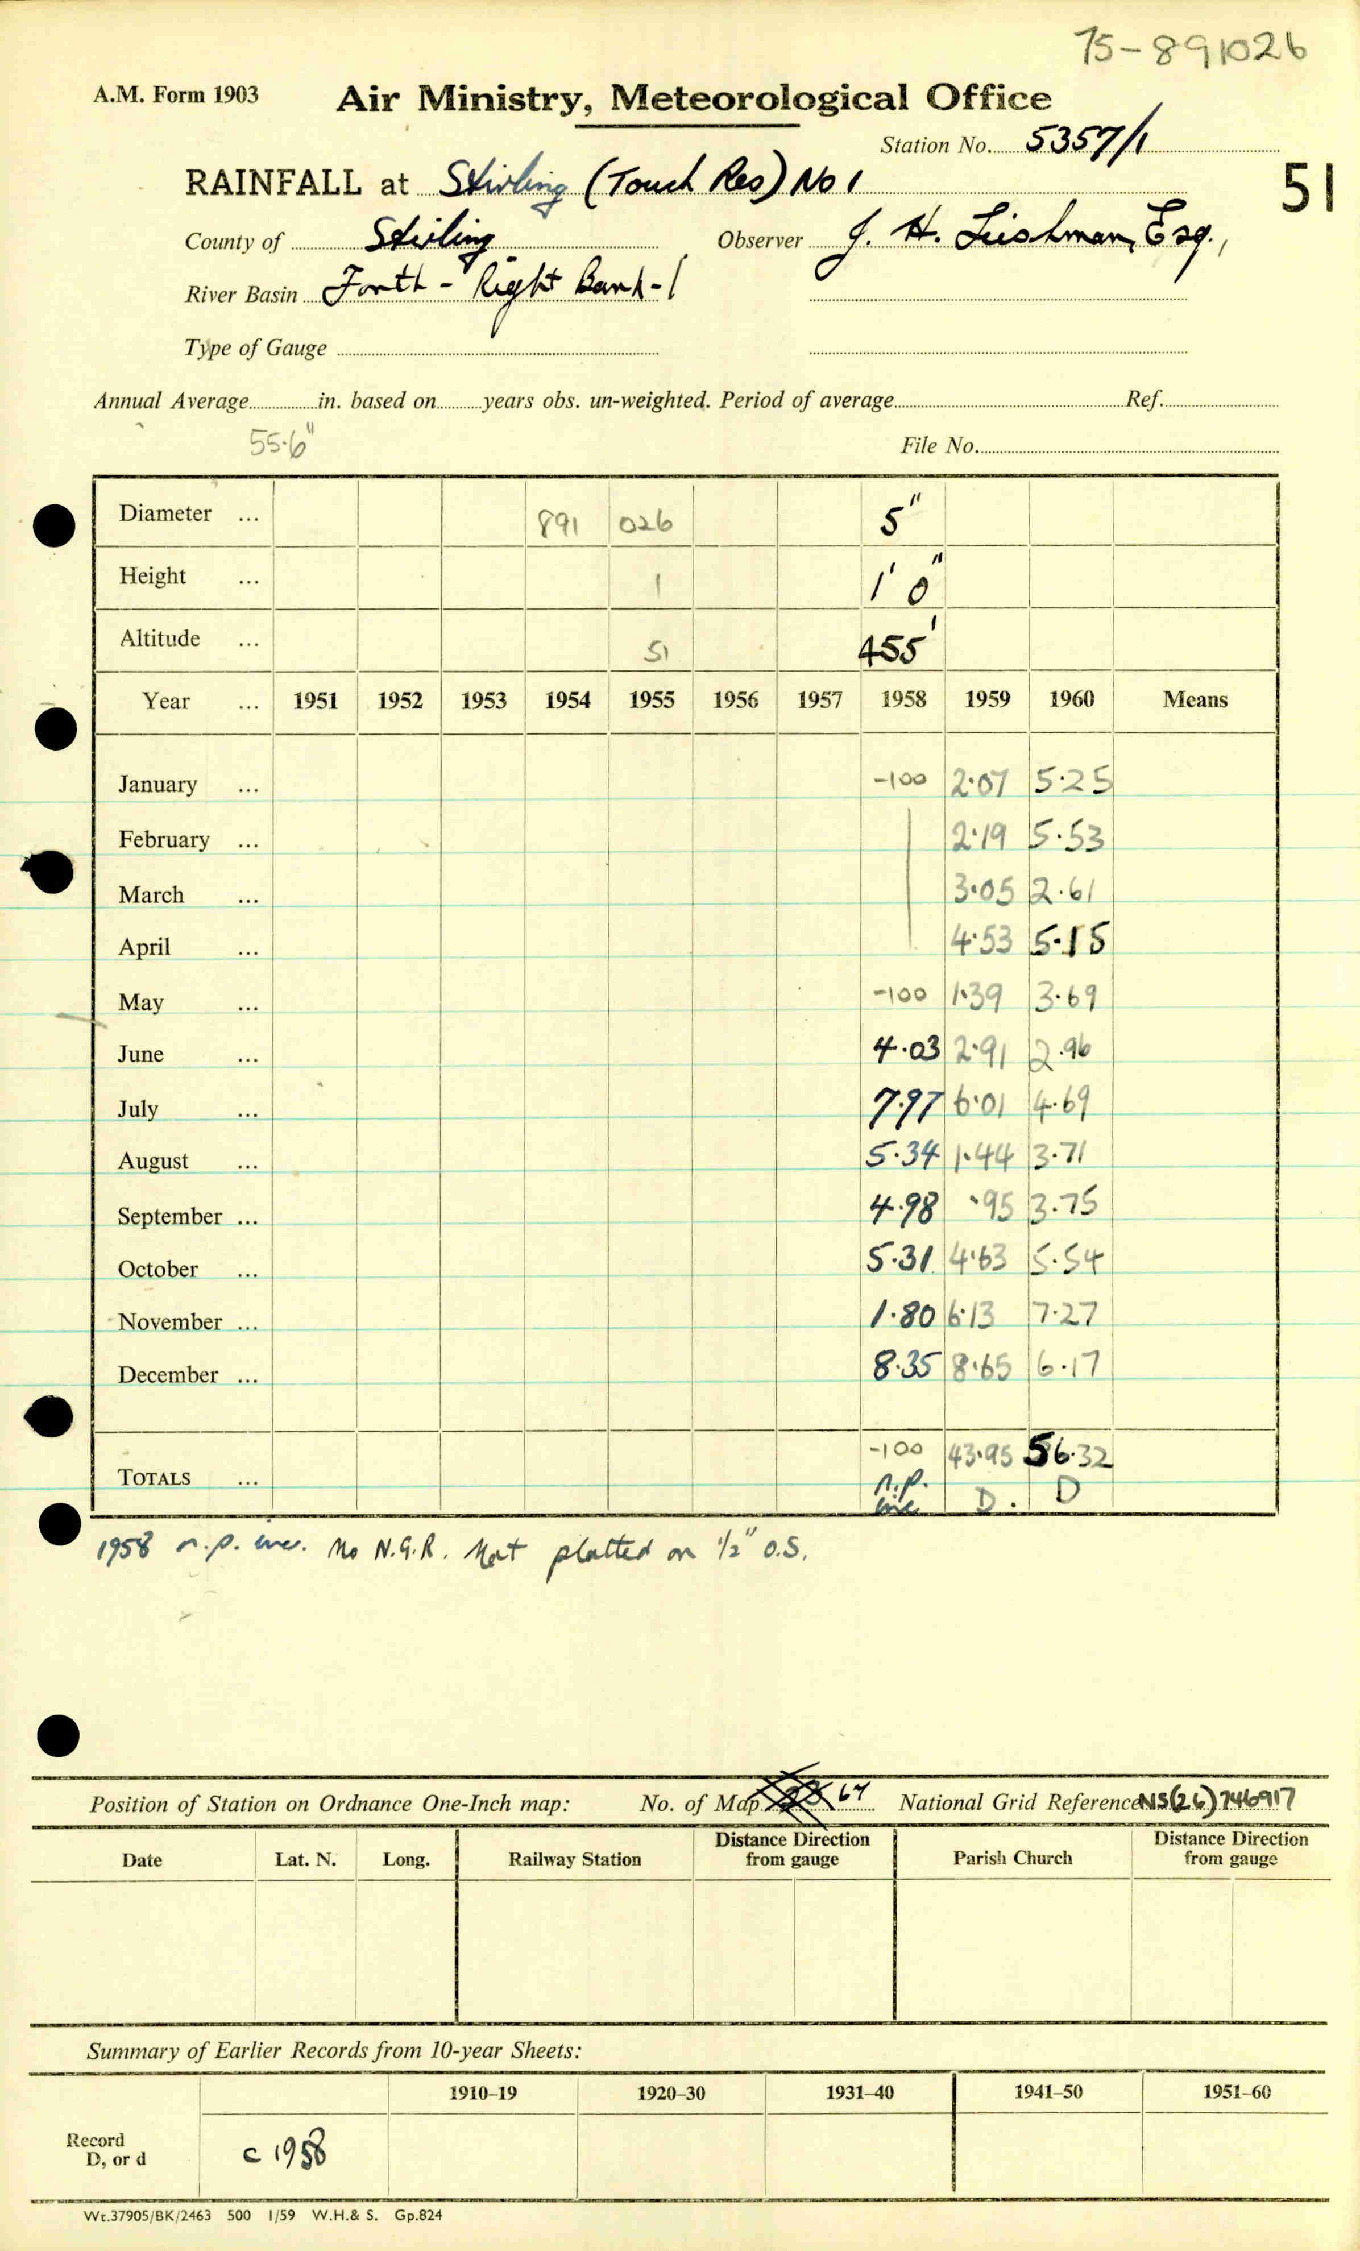 75-891026
A.M. Form 1903 Air Ministry, Meteorological Office
Station No. 5357/1
RAINFALL at Stirling (Touch Res) No 1 51
County of Stirling Observer J. H. Leishman, Esq.,
River Basin Forth - Right Bank - 1
Type of Gauge
Annual Average in. based on years obs. un-weighted. Period of average Ref.
55.6" File No.
Diameter ... 891 026 5"
Height ... 1 1' 0"
Altitude ... 51 455'
Year ... 1951 1952 1953 1954 1955 1956 1957 1958 1959 1960 Means
January ... -100 2.07 5.25
February ... 2.19 5.53
March ... 3.05 2.61
April ... 4.53 5.15
May ... -100 1.39 3.69
June ... 4.03 2.91 2.96
July ... 7.97 6.01 4.69
August ... 5.34 1.44 3.71
September ... 4.98 .95 3.75
October ... 5.31 4.63 5.54
November ... 1.80 6.13 7.27
December ... 8.35 8.65 6.17
TOTALS ... -100 43.95 56.32
n.p. inc D. D
1958 n.p. inc. No N.G.R. Not plotted on 1/2" O.S.
Position of Station on Ordnance One-Inch map: No. of Map 67 National Grid Reference NS(26)746917
Date Lat. N. Long. Railway Station Distance Direction from gauge Parish Church Distance Direction from gauge
Summary of Earlier Records from 10-year Sheets:
1910–19 1920–30 1931–40 1941–50 1951–60
Record
D, or d c 1958
Wt.37905/BK/2463 500 1/59 W.H.& S. Gp.824